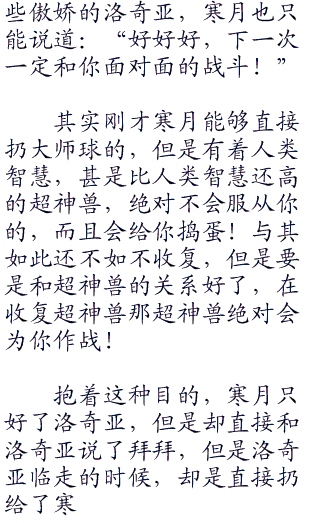 些傲娇的洛奇亚，寒月也只
能说道：“好好好，下一次
一定和你面对面的战斗！”
其实刚才寒月能够直接
扔大师球的，但是有着人类
智慧，甚是比人类智慧还高
的超神兽，绝对不会服从你
的，而且会给你捣蛋！与其
如此还不如不收复，但是要
是和超神兽的关系好了，在
收复超神兽那超神兽绝对会
为你作战！
抱着这种目的，寒月只
好了洛奇亚，但是却直接和
洛奇亚说了拜拜，但是洛奇
亚临走的时候，却是直接扔
给了寒